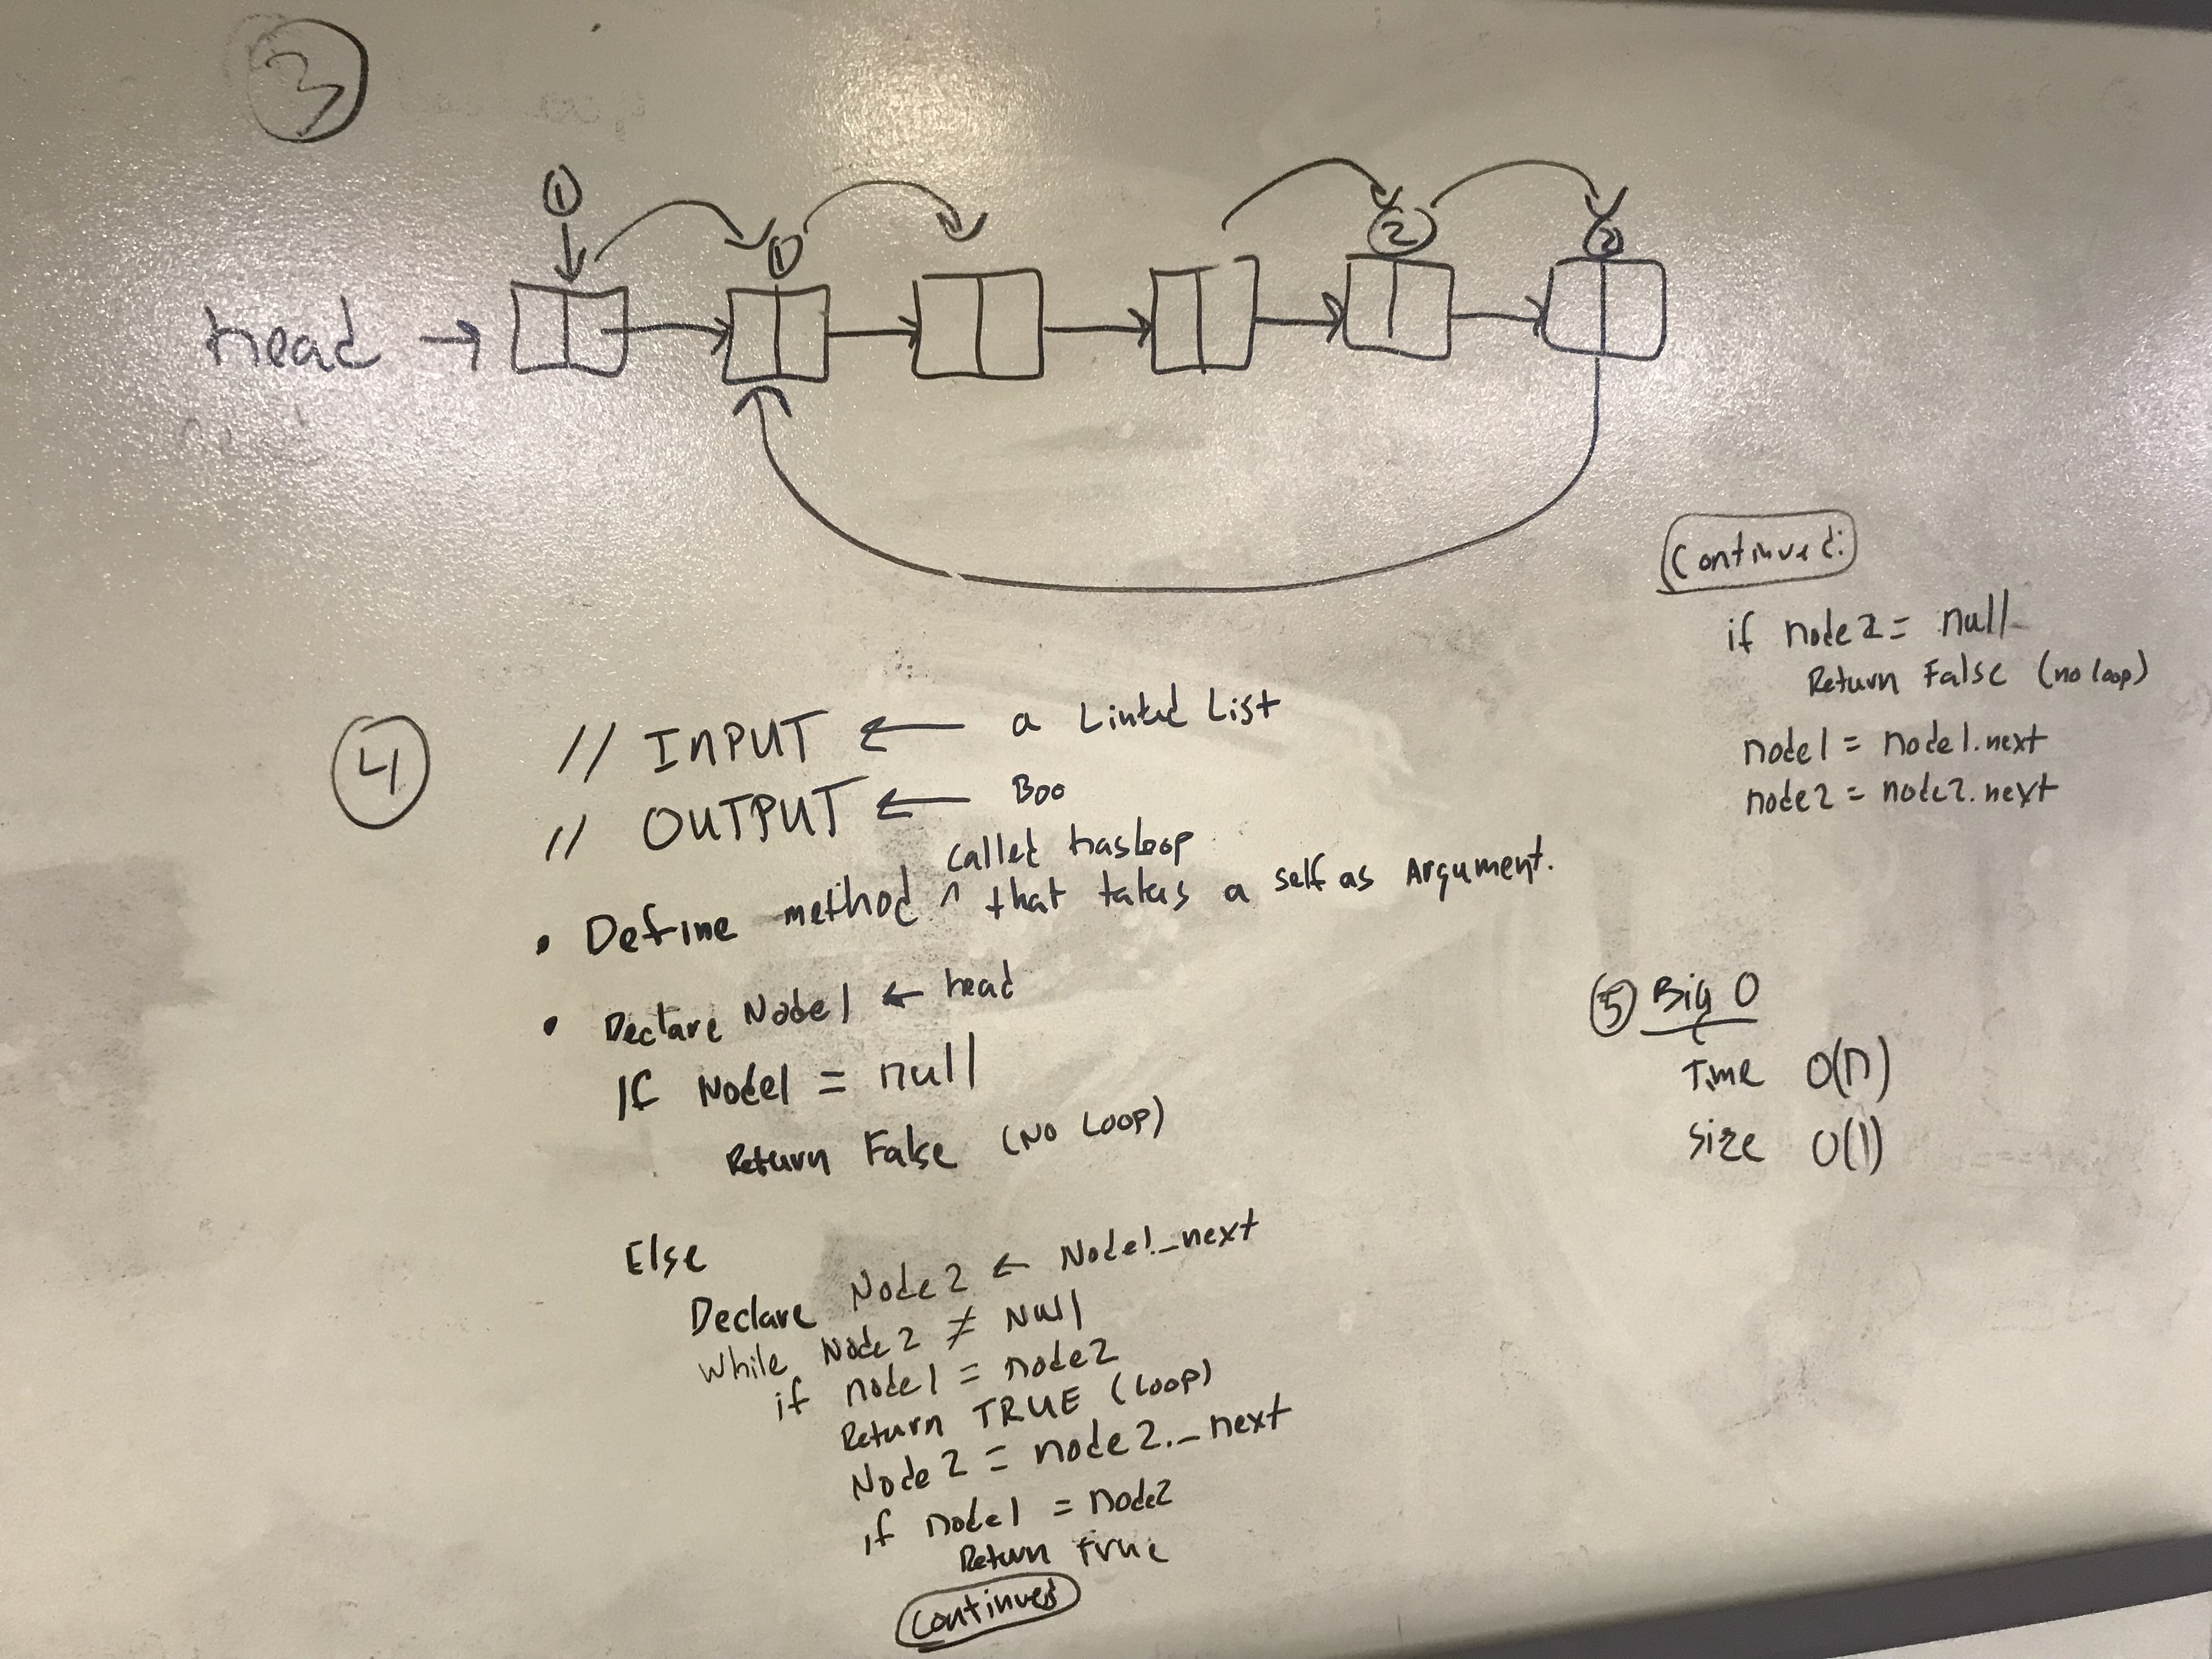 3
1
1
2
2
head →
4
// INPUT ← a Linked List
// OUTPUT ← Boo
called hasloop
• Define method ^ that takes a self as Argument.
• Declare Node1 ← head
If Node1 = null
Return False (No Loop)
Else
Declare Node2 ← Node1._next
while Node2 ≠ Null
if node1 = node2
Return TRUE (Loop)
Node2 = node2._next
if node1 = node2
Return true
Continued
Continued:
if node2 = null
Return False (no loop)
node1 = node1.next
node2 = node2.next
5 Big O
Time O(n)
Size O(1)